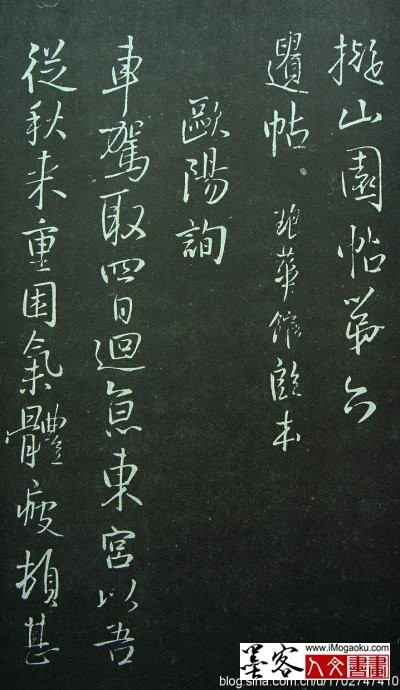 擬山園帖第六
選帖 琅華館本
歐陽詢
車駕取四日迴東宮以吾
從秋来重困氣體疲頓甚
墨客
www.iMogaoku.com
人文書畫
blog.sina.com.cn/u/1702747410